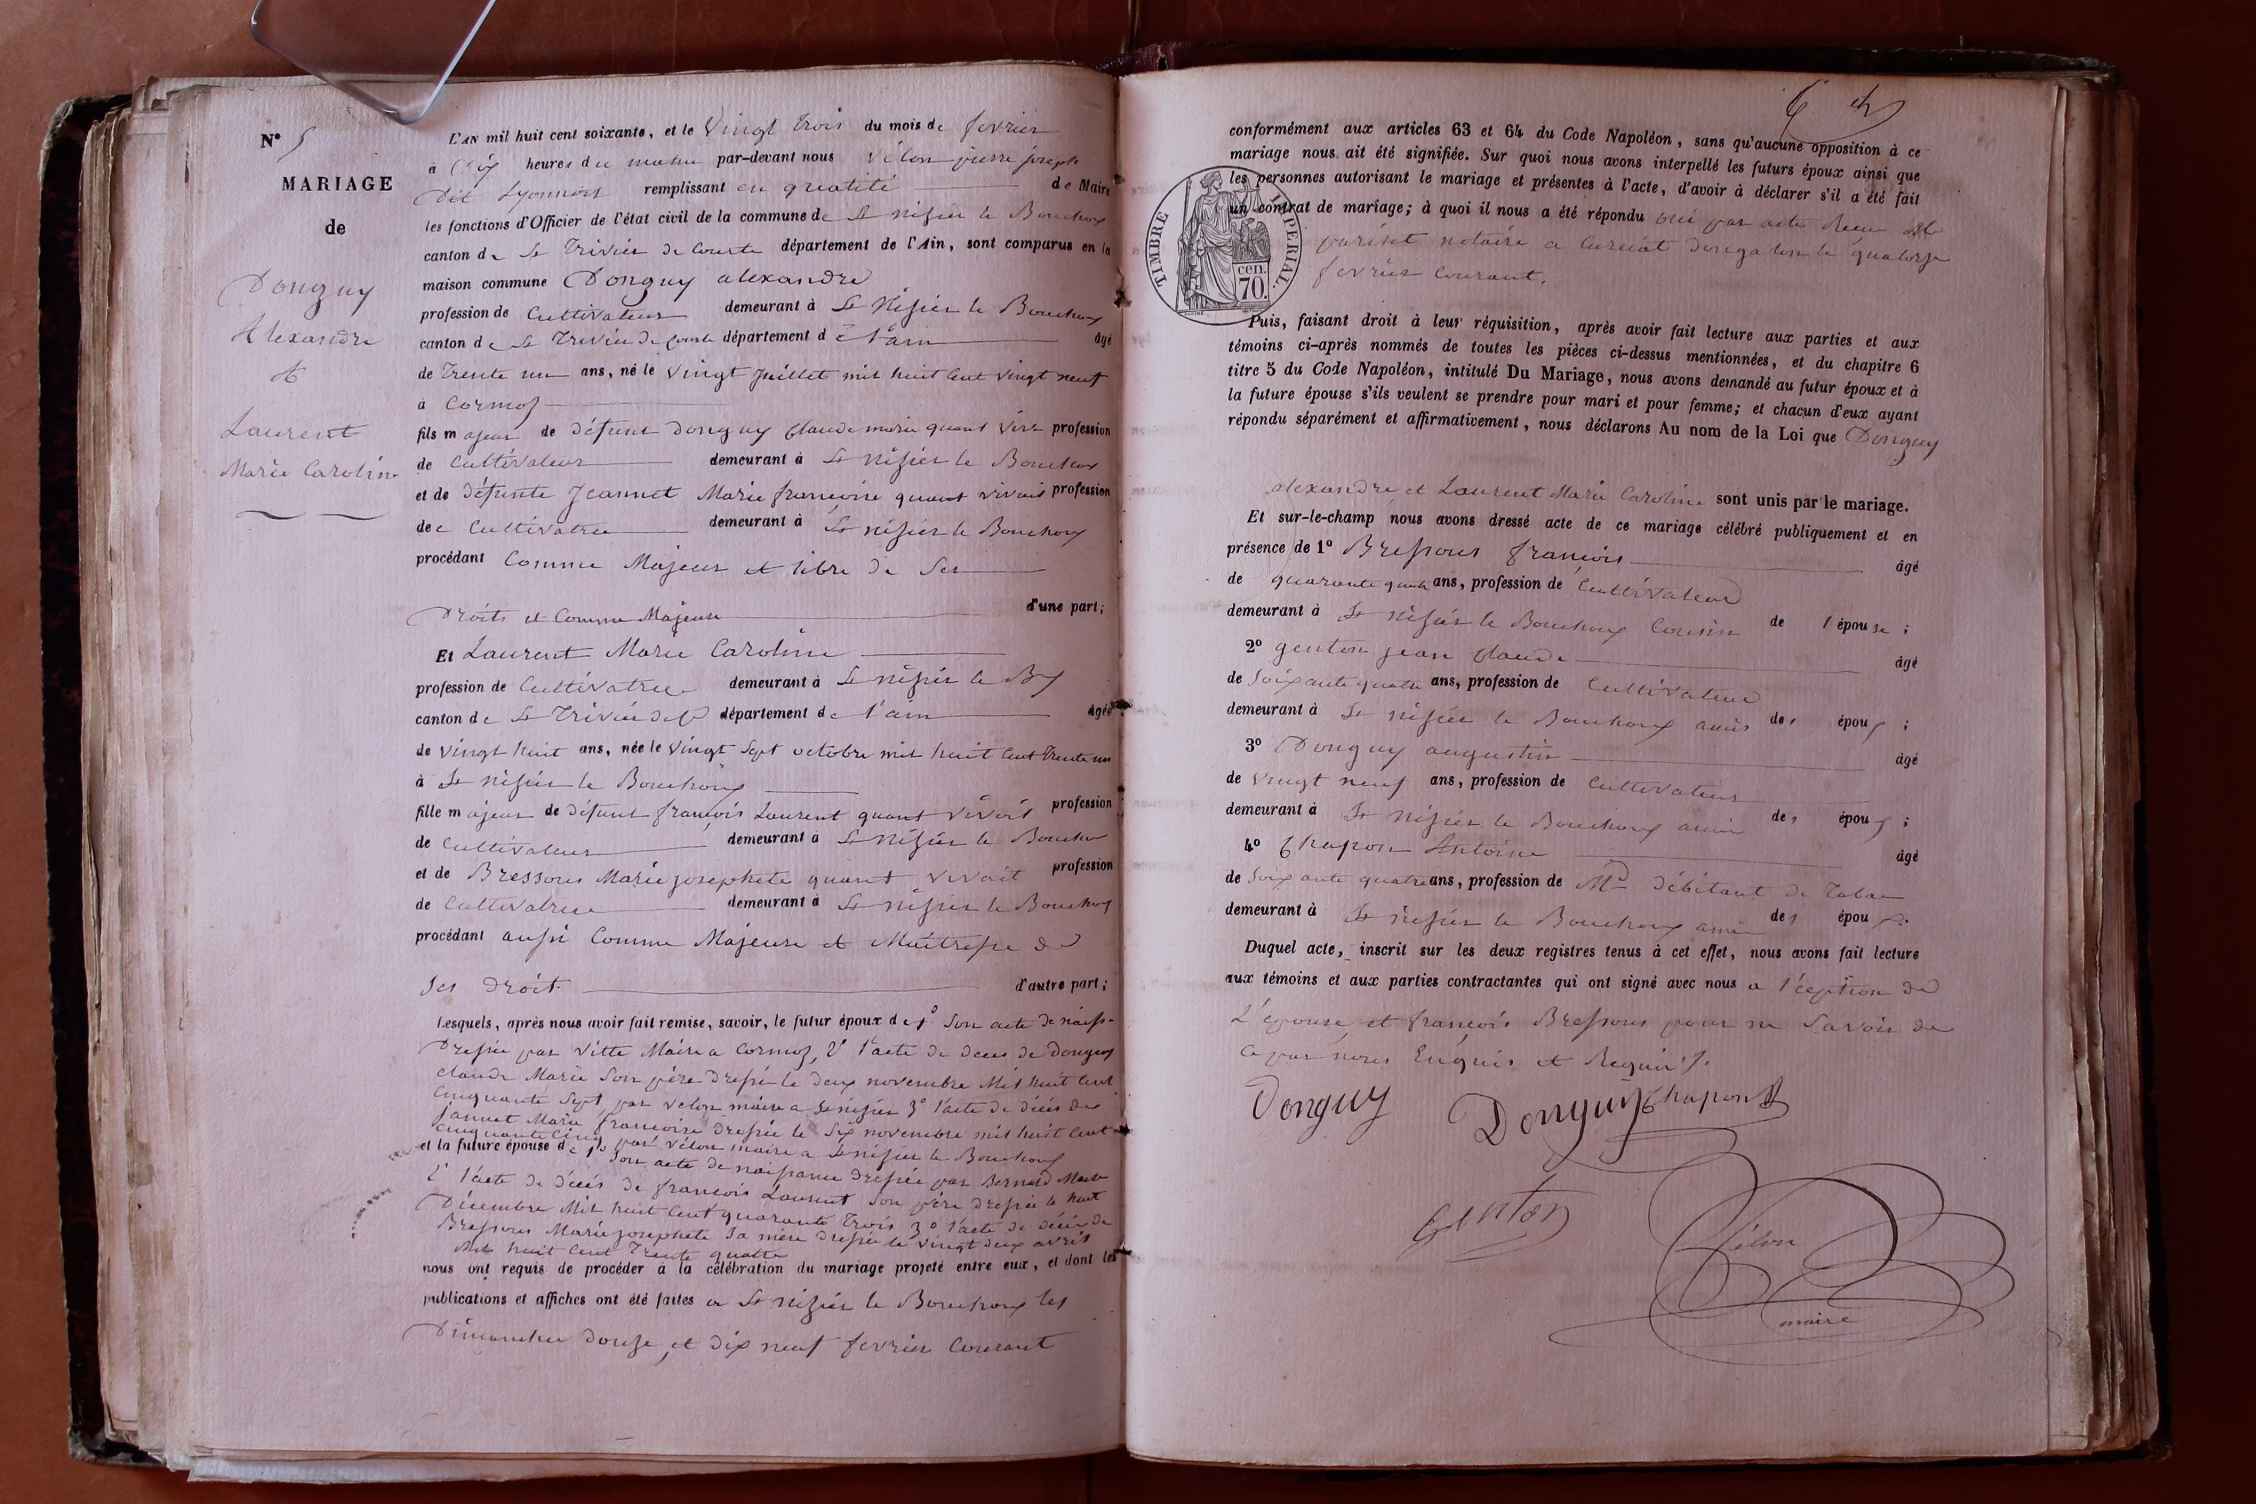 N° 5
MARIAGE
de
Donguy
Alexandre
et
Laurent
Marie Caroline
L'AN mil huit cent soixante, et le vingt trois du mois de fevrier
à dix heures du matin par-devant nous Vélon pierre joseph
dit Lyonnois remplissant en qualité de Maire
les fonctions d'Officier de l'état civil de la commune de St nisier le Bouchoux
canton de St Trivier de Courte département de l'Ain, sont comparus en la
maison commune Donguy alexandre
profession de Cultivateur demeurant à St Nisier le Bouchoux
canton de St Trivier de Courte département de l'ain âgé
de Trente un ans, né le vingt juillet mil huit cent vingt neuf
à Cormoz
fils majeur de défunt donguy Claude marie quant vivr profession
de Cultivateur demeurant à St nisier le Bouchoux
et de défunte Jeannet Marie francoise quant vivait profession
de Cultivatrice demeurant à St nisier le Bouchoux
procédant Comme Majeur et libre de Ses
Droits et Comme Majeur d'une part;
Et Laurent Marie Caroline
profession de Cultivatrice demeurant à St nisier le Bx
canton de St Trivier de C département de l'ain âgée
de vingt huit ans, née le vingt sept octobre mil huit cent trente un
à St nisier le Bouchoux
fille majeur de défunt francois Laurent quant vivoit profession
de Cultivateur demeurant à St nisier le Bouchoux
et de Bressous Marie josephete quant vivait profession
de Cultivatrice demeurant à St nisier le Bouchoux
procédant aussi Comme Majeure et Maitresse de
Ses droit d'autre part;
Lesquels, après nous avoir fait remise, savoir, le futur époux de 1° Son acte de naiss-
Dressée par Vitte Maire a Cormoz, 2° l'acte de deces de Donguy
claude Marie Son père dressé le deux novembre Mil huit cent
Cinquante Sept par Velon maire a St nisier 3° l'acte de décès de
jannet Marie francoise dressée le Six novembre mil huit cent
cinquante cinq par Vélon maire a St nisier le Bouchoux
et la future épouse de 1° Son acte de naissance dressée par Bernard Maire
2° l'acte de décès de francois Laurent Son père dressée le huit
Décembre Mil huit cent quarante trois 3° l'acte de décès de
Bressous Marie josephete Sa mère dressée le vingt deux avril
Mil huit Cent Trente quatre
nous ont requis de procéder à la célébration du mariage projeté entre eux, et dont les
publications et affiches ont été faites a St nisier le Bouchoux les
Dimanches douze et dix neuf fevrier Courant
conformément aux articles 63 et 64 du Code Napoléon, sans qu'aucune opposition à ce
mariage nous ait été signifiée. Sur quoi nous avons interpellé les futurs époux ainsi que
les personnes autorisant le mariage et présentes à l'acte, d'avoir à déclarer s'il a été fait
un contrat de mariage; à quoi il nous a été répondu oui par acte Recu
notaire a Curciat dongalon le quatorze
fevrier Courant.
TIMBRE IMPERIAL.
70. cen.
Puis, faisant droit à leur réquisition, après avoir fait lecture aux parties et aux
témoins ci-après nommés de toutes les pièces ci-dessus mentionnées, et du chapitre 6
titre 5 du Code Napoléon, intitulé Du Mariage, nous avons demandé au futur époux et à
la future épouse s'ils veulent se prendre pour mari et pour femme; et chacun d'eux ayant
répondu séparément et affirmativement, nous déclarons Au nom de la Loi que Donguy
alexandre et Laurent Marie Caroline sont unis par le mariage.
Et sur-le-champ nous avons dressé acte de ce mariage célébré publiquement et en
présence de 1° Bressous francois âgé
de quarante quatre ans, profession de Cultivateur
demeurant à St nisier le Bouchoux Cousin de l'épouse;
2° genton jean Claude âgé
de Soixante quatre ans, profession de Cultivateur
demeurant à St nisier le Bouchoux amis des époux;
3° Donguy augustin âgé
de vingt neuf ans, profession de Cultivateur
demeurant à St nisier le Bouchoux amis des époux;
4° Chapon Antoine âgé
de Soixante quatre ans, profession de Md débitant de Tabac
demeurant à St nisier le Bouchoux ami des époux.
Duquel acte, inscrit sur les deux registres tenus à cet effet, nous avons fait lecture
aux témoins et aux parties contractantes qui ont signé avec nous a l'eception de
L'épouse et francois Bressous pour ne Savoir de
Ce par nous Enquis et Requis.
Donguy Donguy Chapon
Genton
Vélon
maire